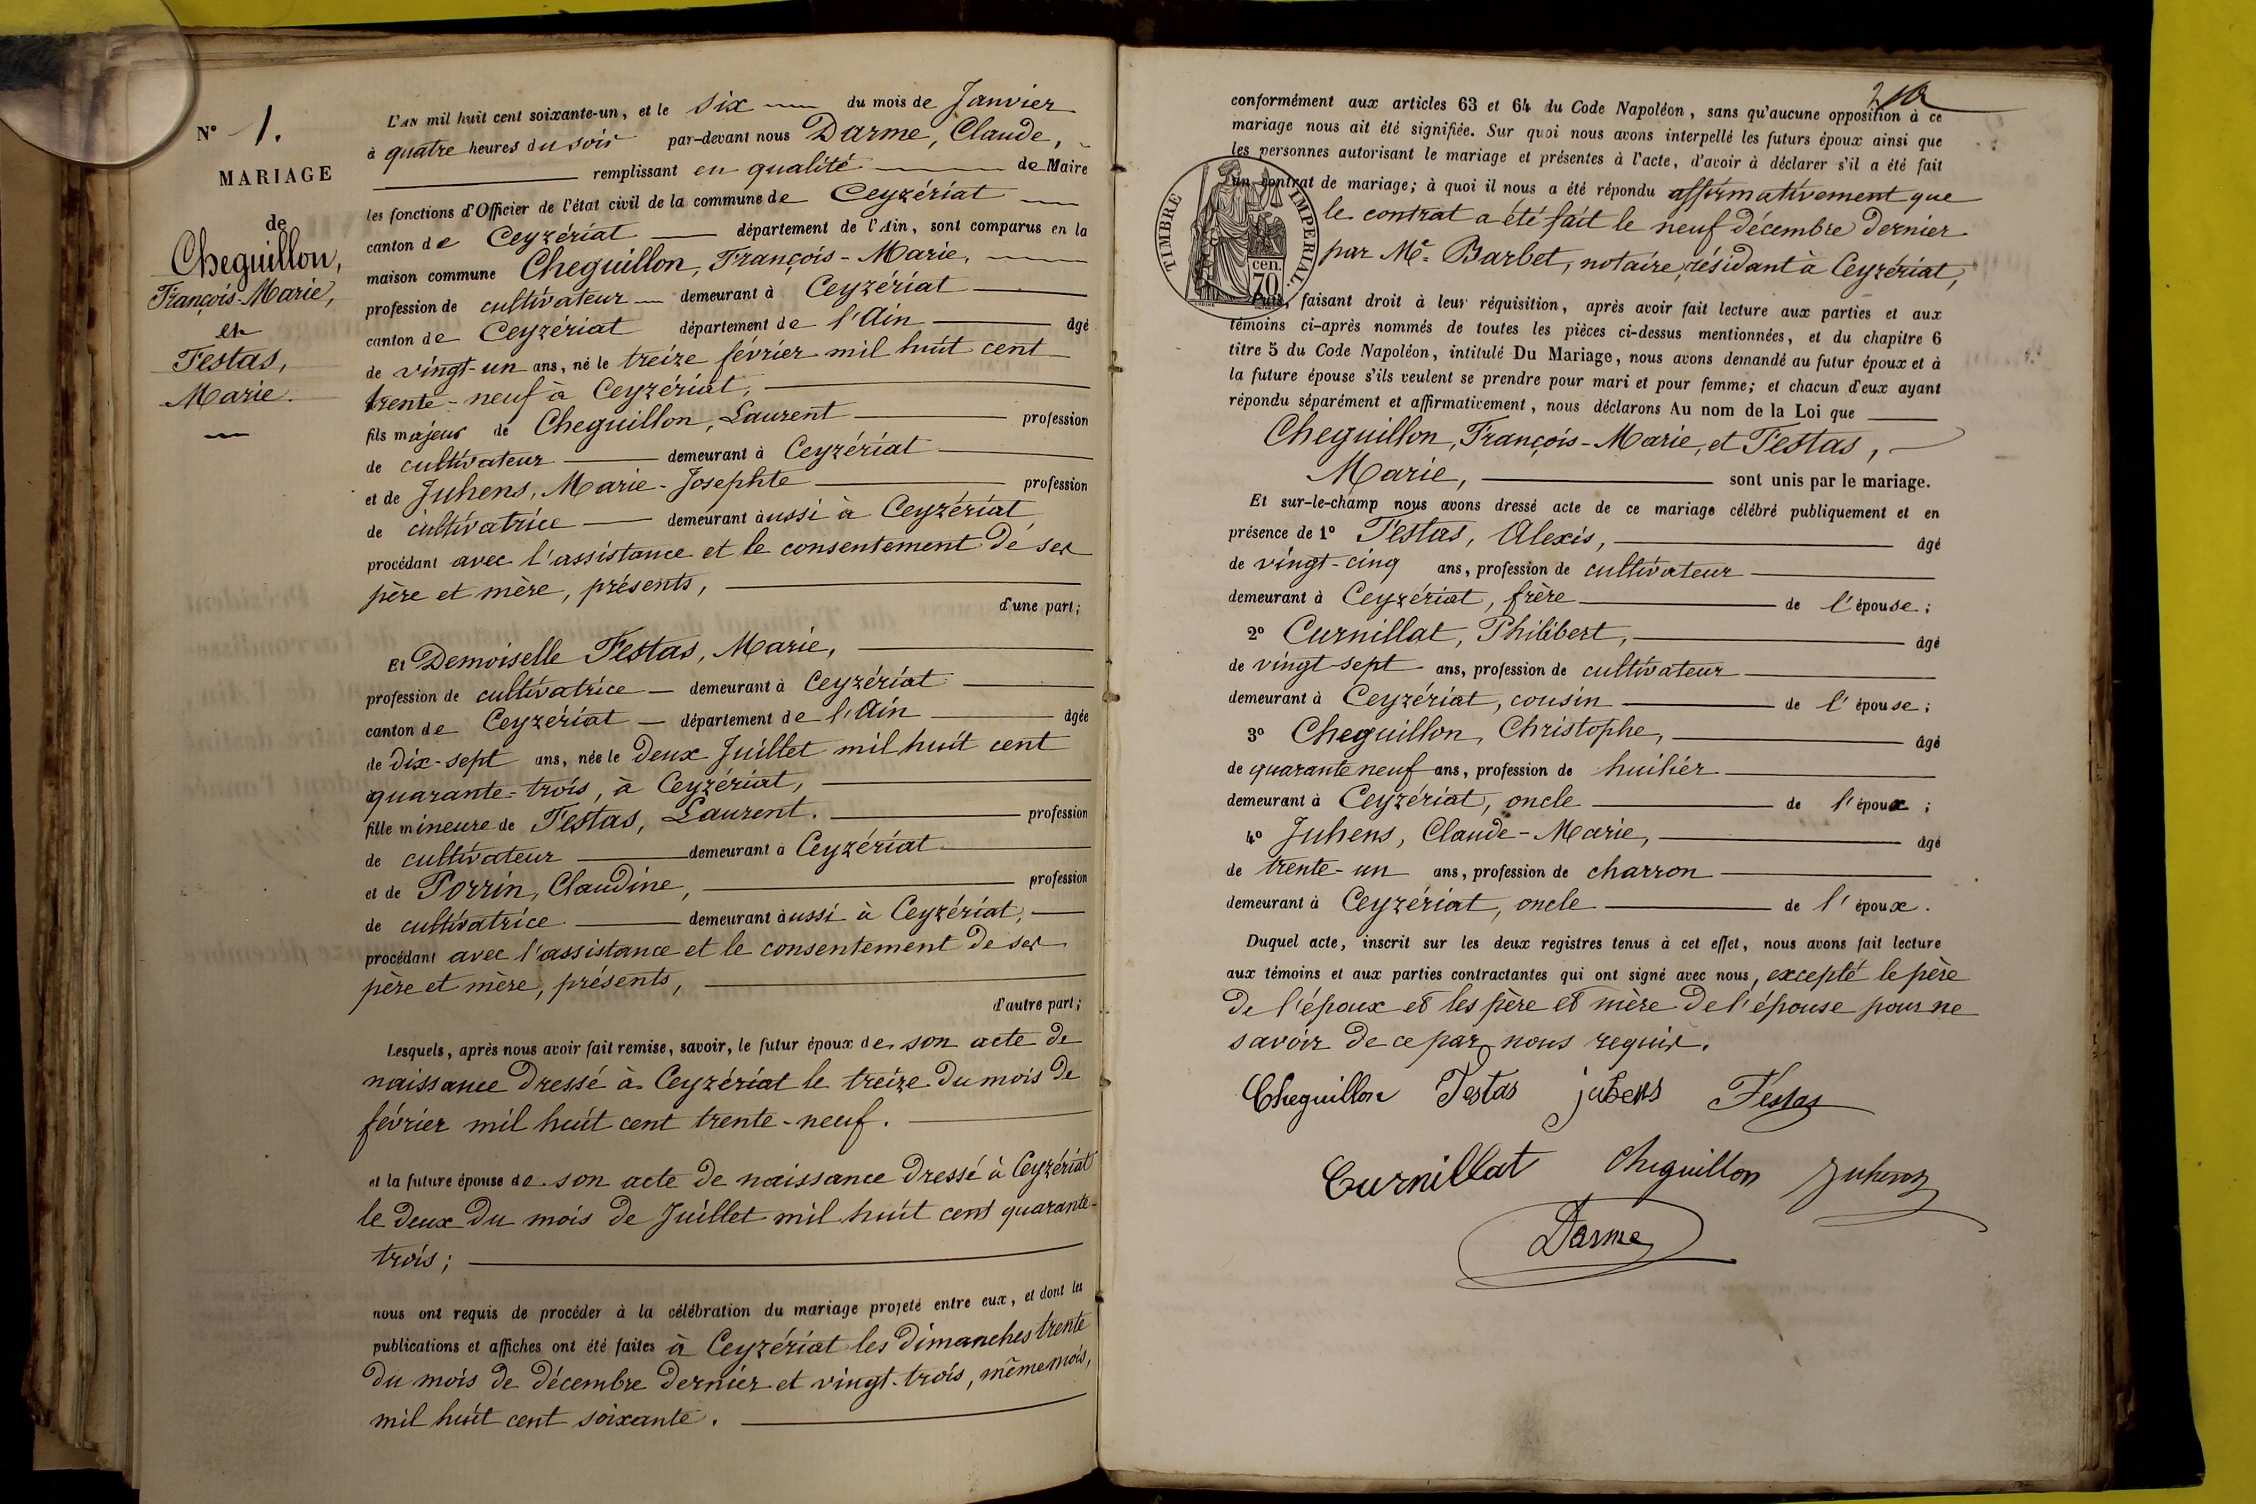 N° 1.
MARIAGE
de
Cheguillon,
François-Marie,
et
Festas,
Marie.
L'AN mil huit cent soixante-un, et le six du mois de Janvier
à quatre heures du soir par-devant nous Darme, Claude,
remplissant en qualité de Maire
les fonctions d'Officier de l'état civil de la commune de Ceyzériat
canton de Ceyzériat département de l'Ain, sont comparus en la
maison commune Cheguillon, François-Marie,
profession de cultivateur demeurant à Ceyzériat
canton de Ceyzériat département de l'Ain âgé
de vingt-un ans, né le treize février mil huit cent
trente-neuf à Ceyzériat,
fils majeur de Cheguillon, Laurent profession
de cultivateur demeurant à Ceyzériat
et de Juhens, Marie-Josephte profession
de cultivatrice demeurant aussi à Ceyzériat
procédant avec l'assistance et le consentement de ses
père et mère, présents,
d'une part;
Et Demoiselle Festas, Marie,
profession de cultivatrice demeurant à Ceyzériat
canton de Ceyzériat département de l'Ain âgée
de dix-sept ans, née le deux Juillet mil huit cent
quarante-trois, à Ceyzériat,
fille mineure de Festas, Laurent. profession
de cultivateur demeurant à Ceyzériat
et de Porrin, Claudine, profession
de cultivatrice demeurant aussi à Ceyzériat,
procédant avec l'assistance et le consentement de ses
père et mère, présents,
d'autre part;
Lesquels, après nous avoir fait remise, savoir, le futur époux de son acte de
naissance dressé à Ceyzériat le treize du mois de
février mil huit cent trente-neuf.
et la future épouse de son acte de naissance dressé à Ceyzériat
le deux du mois de Juillet mil huit cent quarante-
trois;
nous ont requis de procéder à la célébration du mariage projeté entre eux, et dont les
publications et affiches ont été faites à Ceyzériat les dimanches trente
du mois de décembre dernier et vingt-trois, même mois,
mil huit cent soixante.
conformément aux articles 63 et 64 du Code Napoléon, sans qu'aucune opposition à ce
mariage nous ait été signifiée. Sur quoi nous avons interpellé les futurs époux ainsi que
les personnes autorisant le mariage et présentes à l'acte, d'avoir à déclarer s'il a été fait
un contrat de mariage; à quoi il nous a été répondu affirmativement que
le contrat a été fait le neuf décembre dernier
par Me. Barbet, notaire, résidant à Ceyzériat,
TIMBRE IMPERIAL.
cen.
70
Puis, faisant droit à leur réquisition, après avoir fait lecture aux parties et aux
témoins ci-après nommés de toutes les pièces ci-dessus mentionnées, et du chapitre 6
titre 5 du Code Napoléon, intitulé Du Mariage, nous avons demandé au futur époux et à
la future épouse s'ils veulent se prendre pour mari et pour femme; et chacun d'eux ayant
répondu séparément et affirmativement, nous déclarons Au nom de la Loi que
Cheguillon, François-Marie, et Festas,
Marie, sont unis par le mariage.
Et sur-le-champ nous avons dressé acte de ce mariage célébré publiquement et en
présence de 1° Festas, Alexis, âgé
de vingt-cinq ans, profession de cultivateur
demeurant à Ceyzériat, frère de l'épouse;
2° Curnillat, Philibert, âgé
de vingt-sept ans, profession de cultivateur
demeurant à Ceyzériat, cousin de l'épouse;
3° Cheguillon, Christophe, âgé
de quarante neuf ans, profession de huilier
demeurant à Ceyzériat, oncle de l'époux;
4° Juhens, Claude-Marie, âgé
de trente-un ans, profession de charron
demeurant à Ceyzériat, oncle de l'époux.
Duquel acte, inscrit sur les deux registres tenus à cet effet, nous avons fait lecture
aux témoins et aux parties contractantes qui ont signé avec nous, excepté le père
de l'époux et les père et mère de l'épouse pour ne
savoir de ce par nous requis.
Cheguillon Festas juhens Festas
Curnillat Cheguillon Juhens
Darme